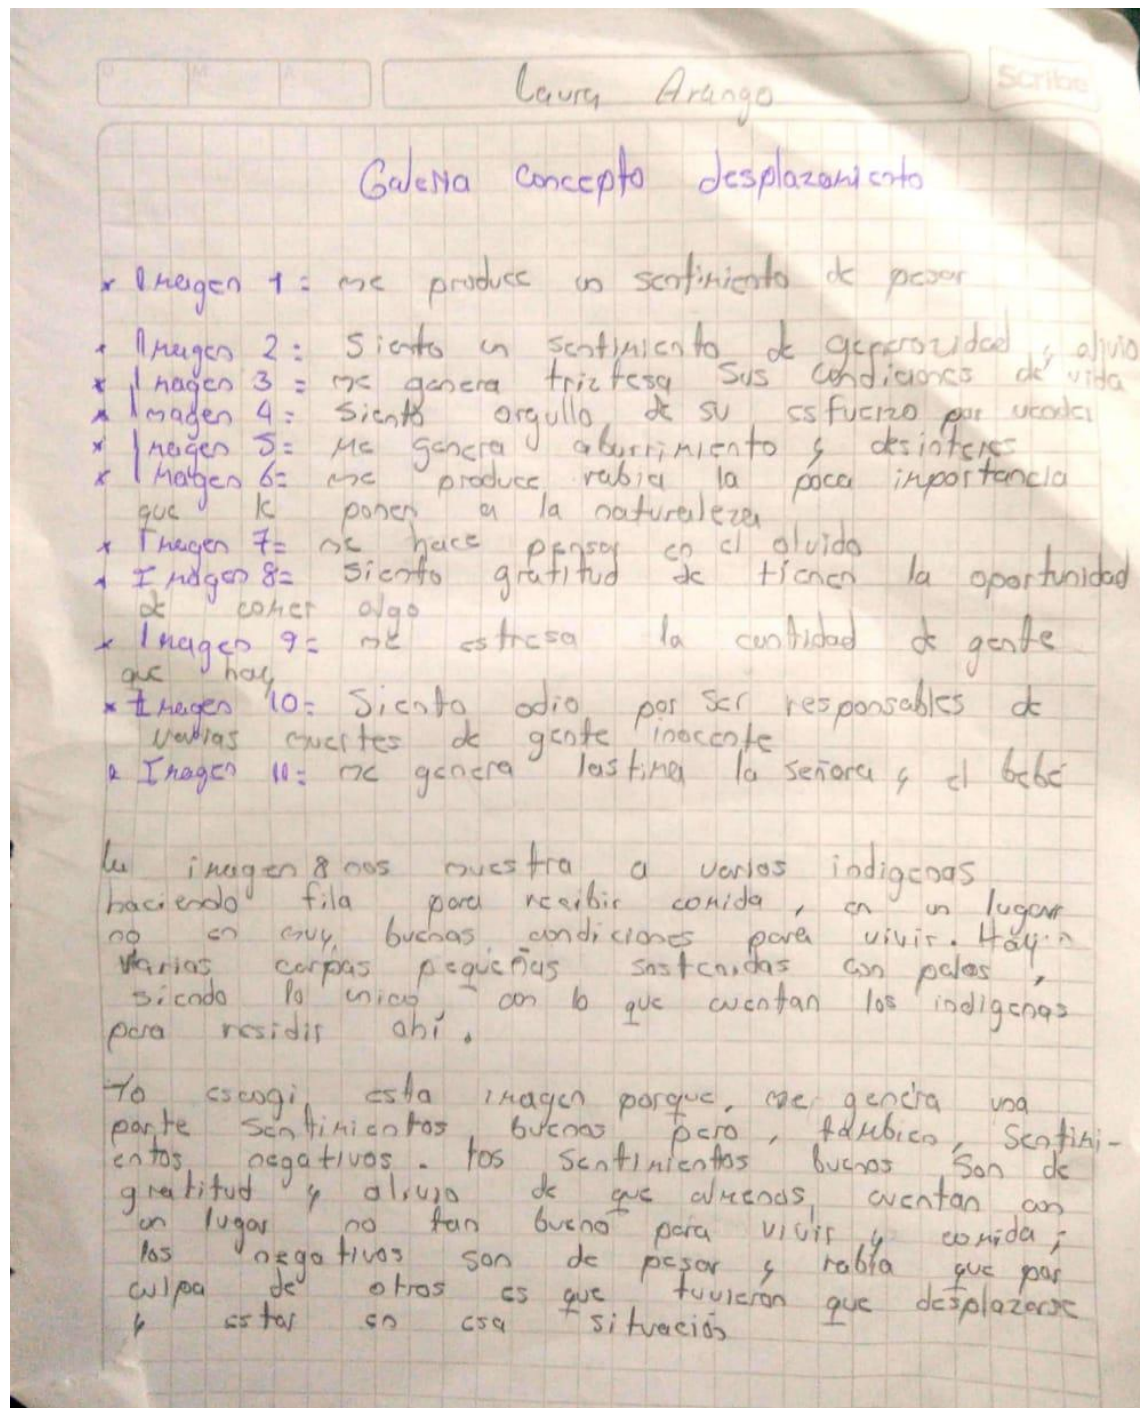 Scribe
Laura Arango
Galeria concepto desplazamiento
* Imagen 1 = me produce un sentimiento de pesar
* Imagen 2 = Siento un sentimiento de generozidad y alivio
* Imagen 3 = me genera triztesa sus condiciones de vida
* Imagen 4 = siento orgullo de su esfuerzo por
* Imagen 5 = Me genera aburrimiento y desinteres
* Imagen 6 = me produce rabia la poca importancia
que le ponen a la naturaleza
* Imagen 7 = me hace pensar en el olvido
* Imagen 8 = siento gratitud de tienen la oportunidad
de comer algo
* Imagen 9 = me estresa la cantidad de gente
que hay
* Imagen 10 = Siento odio por ser responsables de
varias muertes de gente inocente
* Imagen 11 = me genera lastima la señora y el bebé
La imagen 8 nos muestra a varios indigenas
haciendo fila para recibir comida, en un lugar
no en muy buenas condiciones para vivir. Hay
varias carpas pequeñas sostenidas con palos,
siendo lo unico con lo que cuentan los indigenas
para residir ahí.
Yo escogi esta imagen porque, me genera una
parte sentimientos buenos pero, tambien, sentimi-
entos negativos. Los sentimientos buenos son de
gratitud y alivio de que almenos, cuentan con
un lugar no tan bueno para vivir y comida;
los negativos son de pesar y rabia que por
culpa de otros es que tuvieron que desplazarse
y estar en esa situación